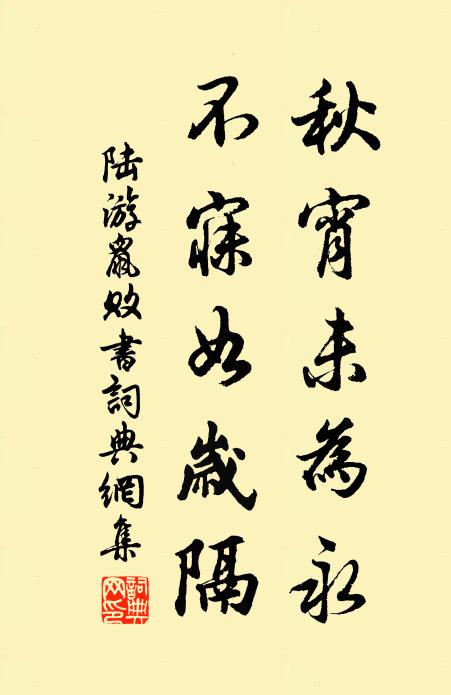 秋宵未為永
不寐如歲隔
陸游鼠敗書詞典網集
詞典網印